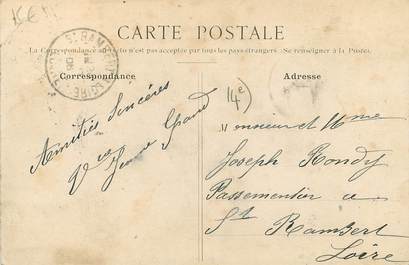 15€
CARTE POSTALE
La Correspondance au recto n'est pas acceptée par tous les pays étrangers. - Se renseigner à la Poste.
Correspondance
Adresse
(4e)
Amitiés Sincères
Vve Jeanne Grand
Monsieur et Mme
Joseph Rondy
Passementier a
St Rambert
Loire